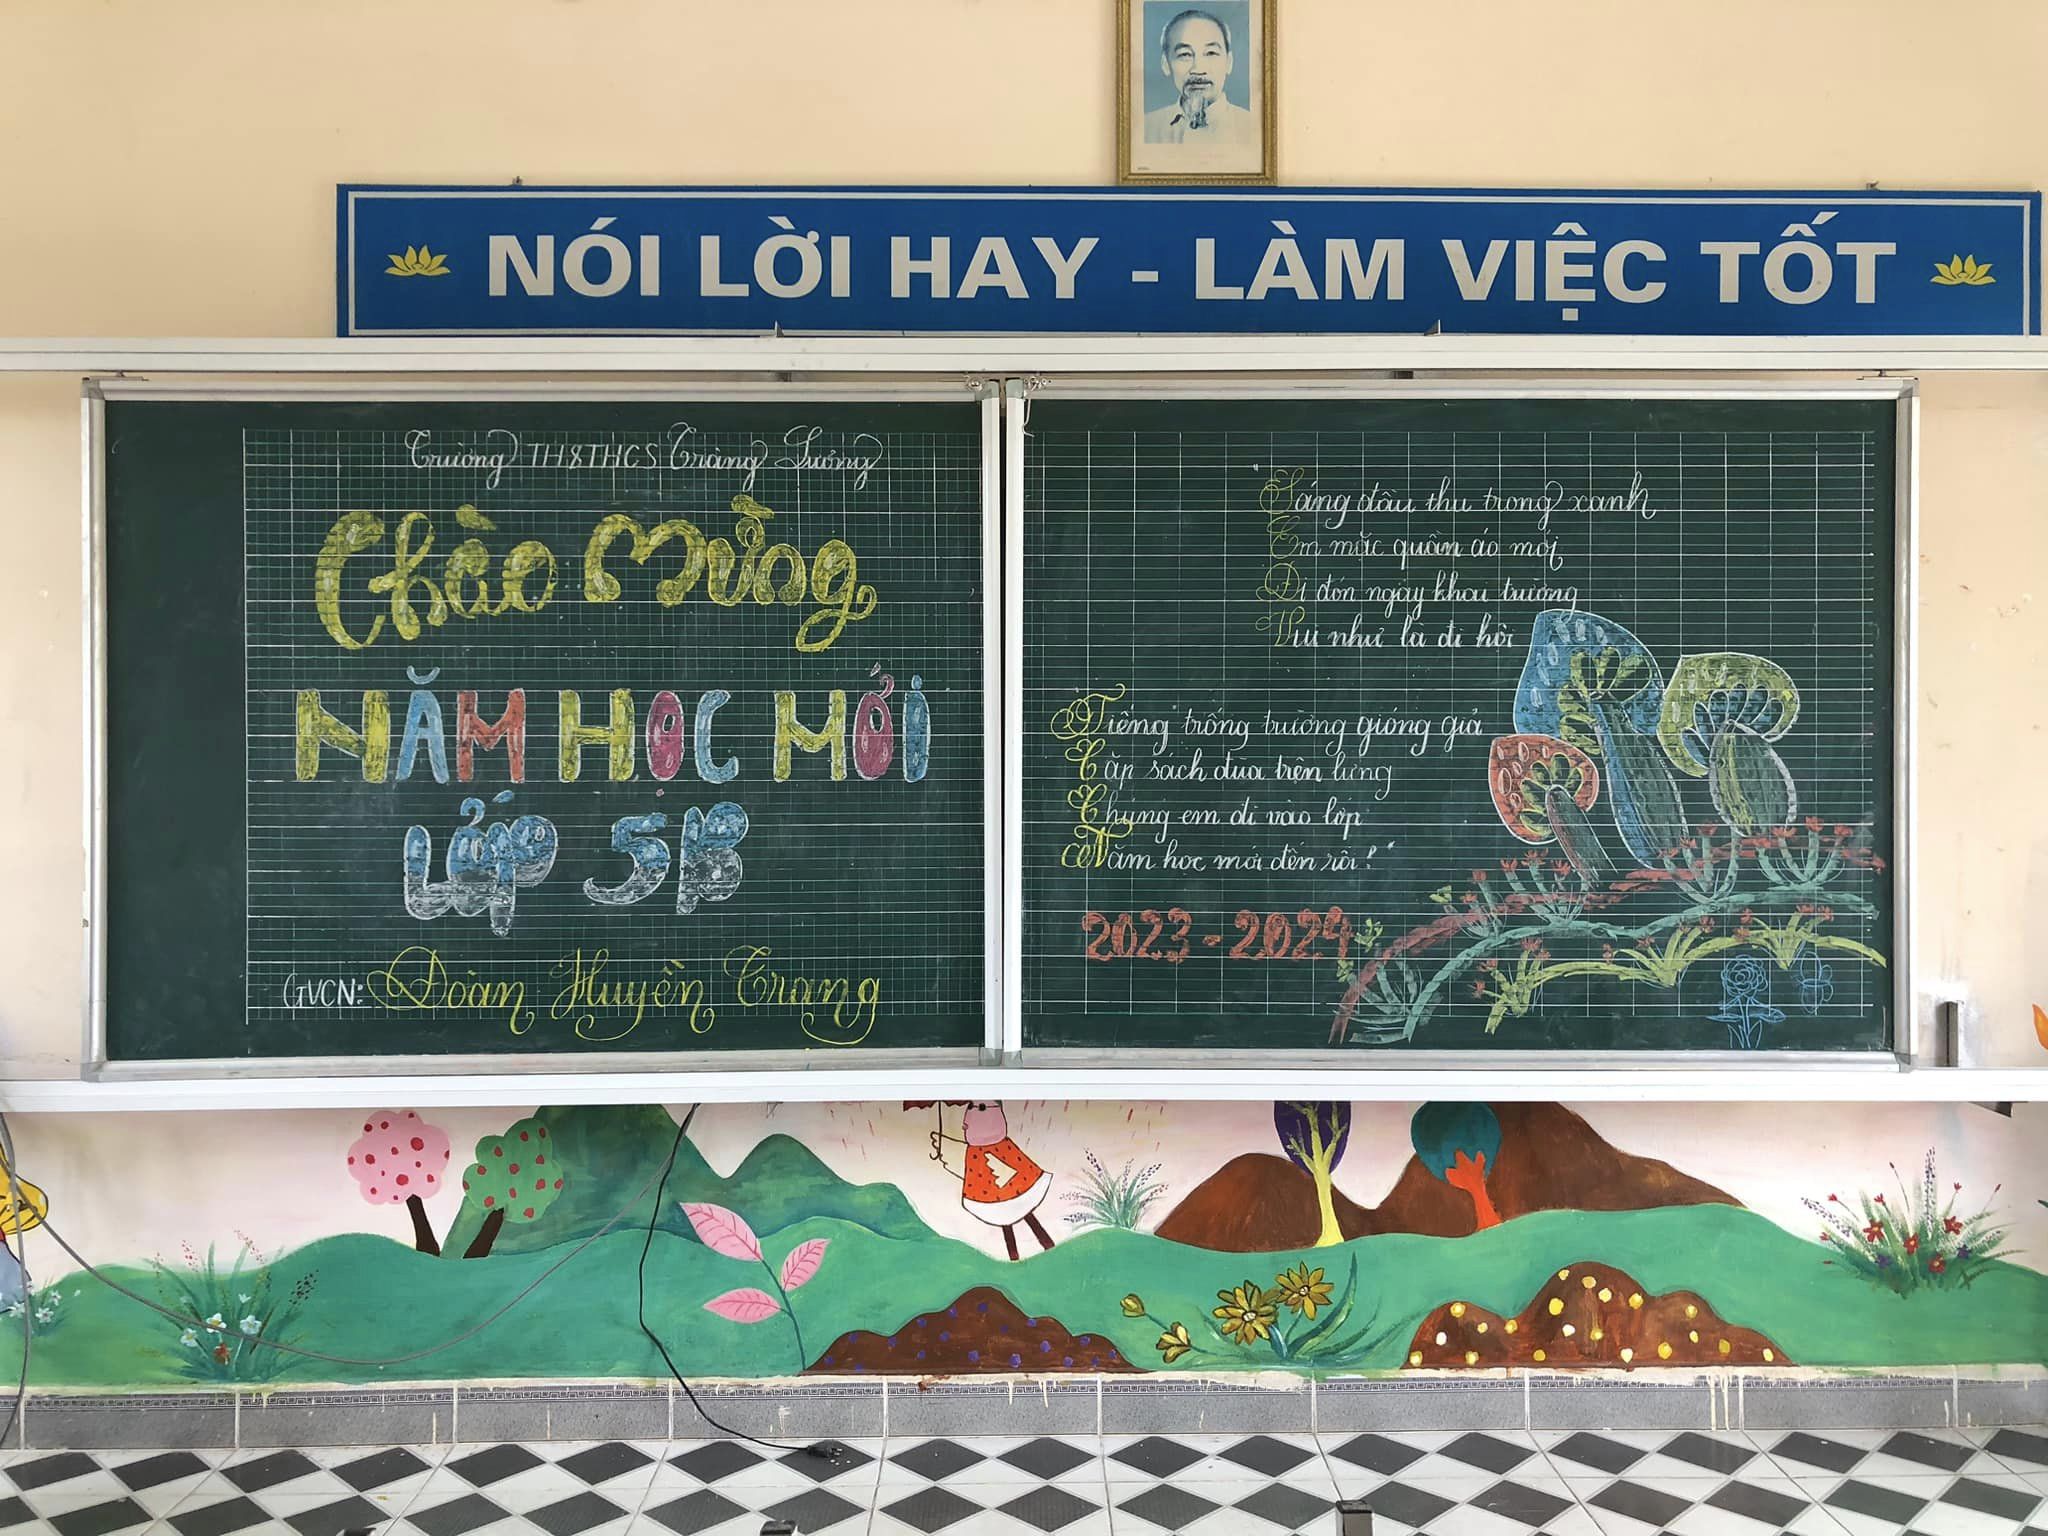 NÓI LỜI HAY - LÀM VIỆC TỐT
Trường TH&THCS Tràng Lương
Chào Mừng
NĂM HỌC MỚI
LỚP 5B
GVCN: Đoàn Huyền Trang
"Sáng đầu thu trong xanh
Em mặc quần áo mới
Đi đón ngày khai trường
Vui như là đi hội
Tiếng trống trường gióng giả
Cặp sách đùa trên lưng
Chúng em đi vào lớp
Năm học mới đến rồi!"
2023-2024